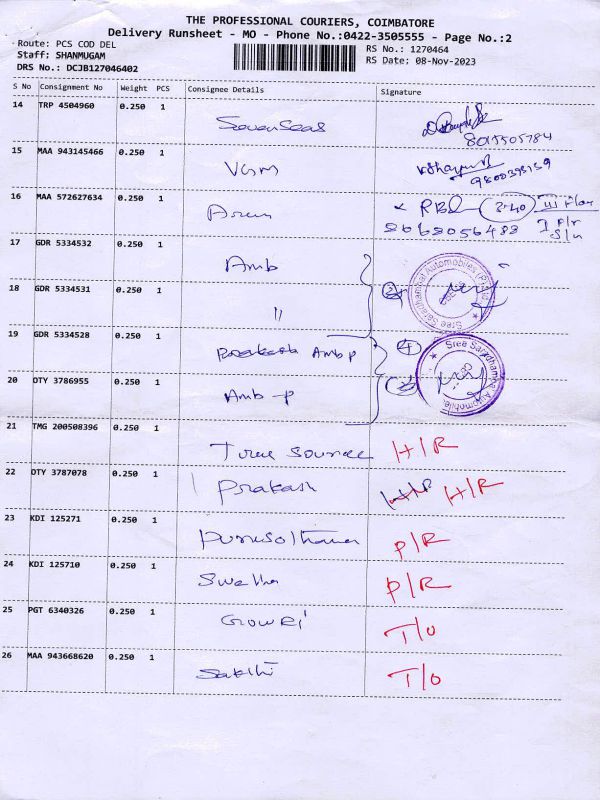 THE PROFESSIONAL COURIERS, COIMBATORE
Delivery Runsheet - MO - Phone No.:0422-3505555 - Page No.:2
Route: PCS COD DEL
Staff: SHANMUGAM
DRS No.: DCJB127046402
RS No.: 1270464
RS Date: 08-Nov-2023
S No Consignment No Weight PCS Consignee Details Signature
14 TRP 4504960 0.250 1 Sevenseas
8015505784
15 MAA 943145466 0.250 1 VGM
9800398159
16 MAA 572627634 0.250 1 Arun RBL 3:40 III Floor
17 GDR 5334532 0.250 1 Amb
18 GDR 5334531 0.250 1 "
Sree Saradhambal Automobiles (P) Ltd
19 GDR 5334528 0.250 1 Amb P 4
20 DTY 3786955 0.250 1 Amb -P
Sree Saradhambal Automobiles
21 TMG 200508396 0.250 1 True source H/R
22 DTY 3787078 0.250 1 Prakash H/R H/R
23 KDI 125271 0.250 1 P/R
24 KDI 125710 0.250 1 Swetha P/R
25 PGT 6340326 0.250 1 GowRi T/O
26 MAA 943668620 0.250 1 Sakthi T/O